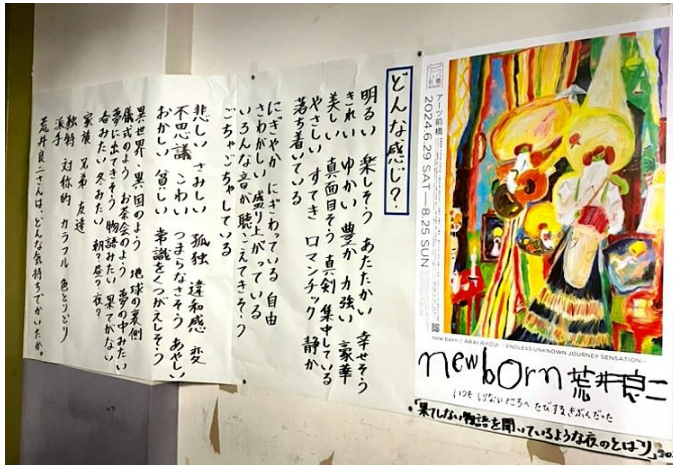 アーツ前橋
2024.6.29 SAT — 8.25 SUN
new born / ARAI RYOJI —ENDLESS UNKNOWN JOURNEY SENSATION—
new born 荒井良二
いつも しらないところへ たびするきぶんだった
「果てしない物語を聞いているような夜のとばり」
どんな感じ?
明るい 楽しそう あたたかい 幸せそう
きれい ゆかい 豊か 力強い 豪華
美しい 真面目そう 真剣 集中している
やさしい すてき ロマンチック 静か
落ち着いている
にぎやか にぎわっている 自由
さわがしい 盛り上がっている
いろんな音が聴こえてきそう
ごちゃごちゃしている
悲しい さみしい 孤独 違和感 変
不思議 こわい つまらなさそう あやしい
おかしい 貧しい 常識をくつがえしそう
異世界 異国のよう 地球の裏側
儀式のよう お茶会のよう 夢の中みたい
夢に出てきそう 物語みたい 果てがない
春みたい 冬みたい 朝?昼?夜?
家族 兄弟 友達
独特 対称的 カラフル 色とりどり
派手
荒井良二さんは、どんな気持ちでかいたか。